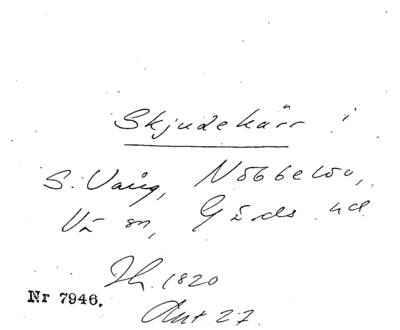 Skjudekärr i
S. Vång, Nöbbelöv,
Vä sn, Gärds hd
Jh. 1820
Nr 7946.
Ant 27.